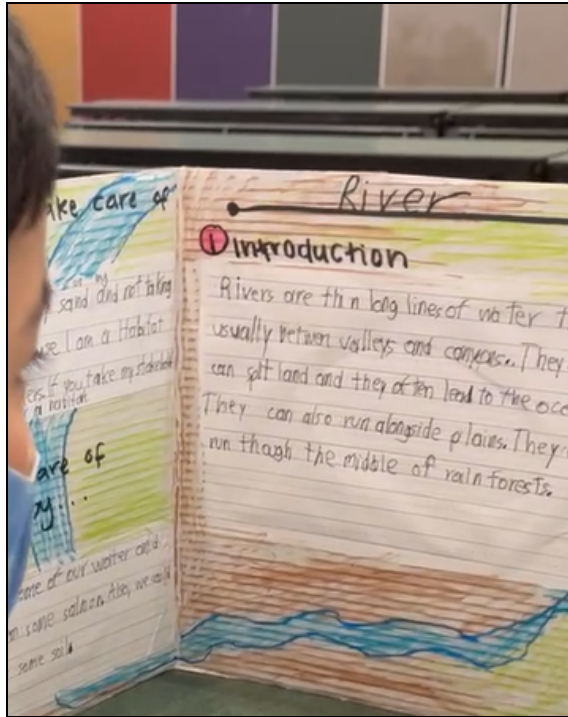 ake care of
sand and not taking
use I am a Habitat
ers. If you take my
a habitat
are of
ay...
ome of our water and
m some salmon. Also, we could
some soil.
River
1 introduction
Rivers are thin long lines of water t
usually betwen valleys and canyons.. They
can split land and they often lead to the oce
They can also run alongside plains. They
run though the middle of rain forests.